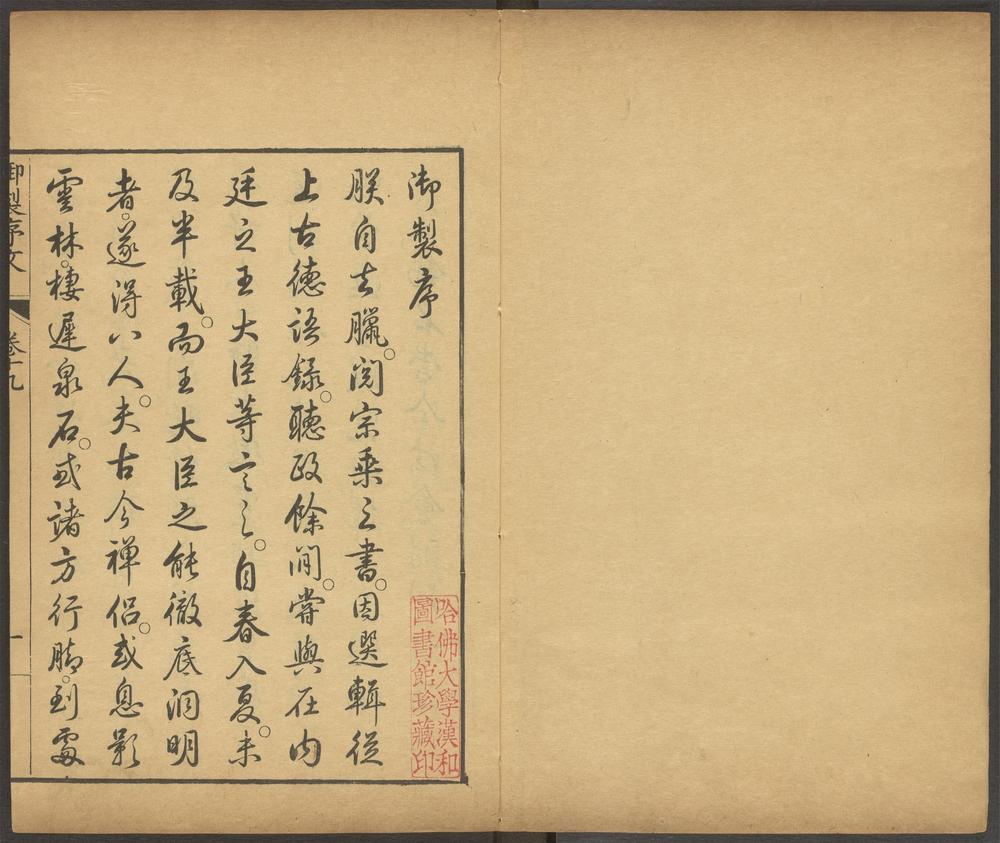 御製序
朕自去臘。閱宗乗之書。因選輯從
上古德語錄。聽政餘閒。嘗與在内
廷之王大臣等言之。自春入夏。未
及半載。而王大臣之能徹底洞明
者。遂得八人。夫古今禪侶。或息影
雲林。棲遲泉石。或諸方行脚。到處
御製序文 卷十九 一
哈佛大學漢和
圖書館珍藏印